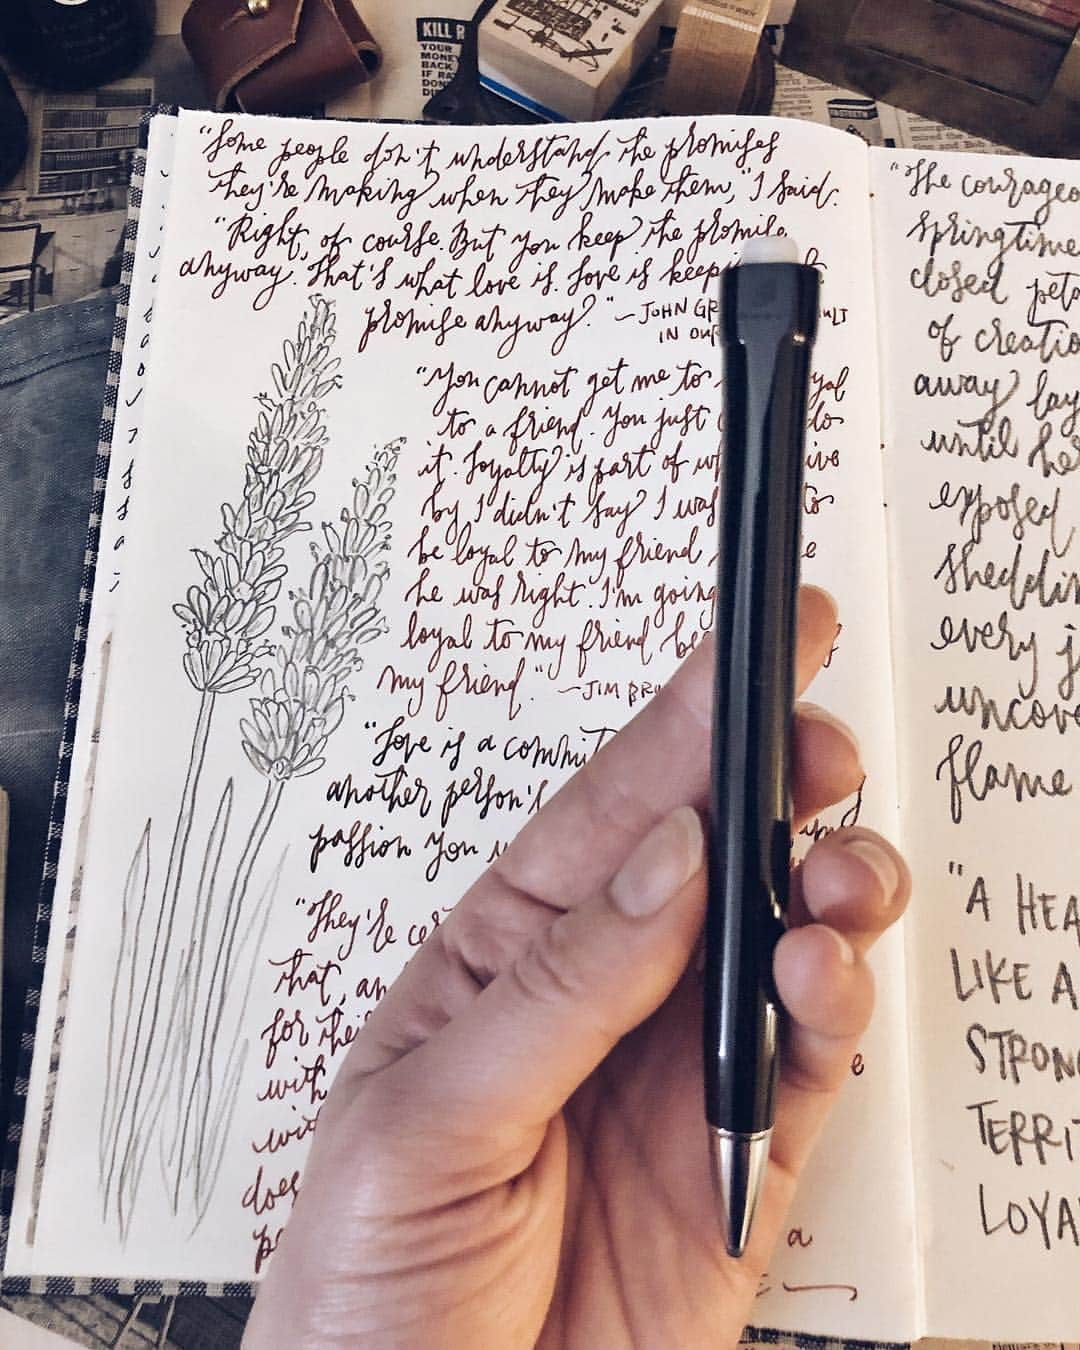 KILL R
YOUR
MONEY
BACK
IF RA
DON
DU
"Some people don't understand the promises
they're making when they make them," I said.
"Right, of course. But you keep the promise
anyway. That's what love is. Love is keepi
promise anyway." -JOHN GR ULT
IN OUR
"You cannot get me to yal
to a friend. You just do
it. Loyalty is part of wh ive
by. I didn't say I was to
be loyal to my friend
he was right. I'm going
loyal to my friend be
my friend." -JIM BR
"Love is a commit
another person's
passion you
"They're cer
that, an
for thei
with
wit
does
pe
e
a
"The courageo
springtime
closed peta
of creatio
away lay
until her
exposed
sheddin
every j
uncove
flame
"A HEA
LIKE A
STRONG
TERRIT
LOYA